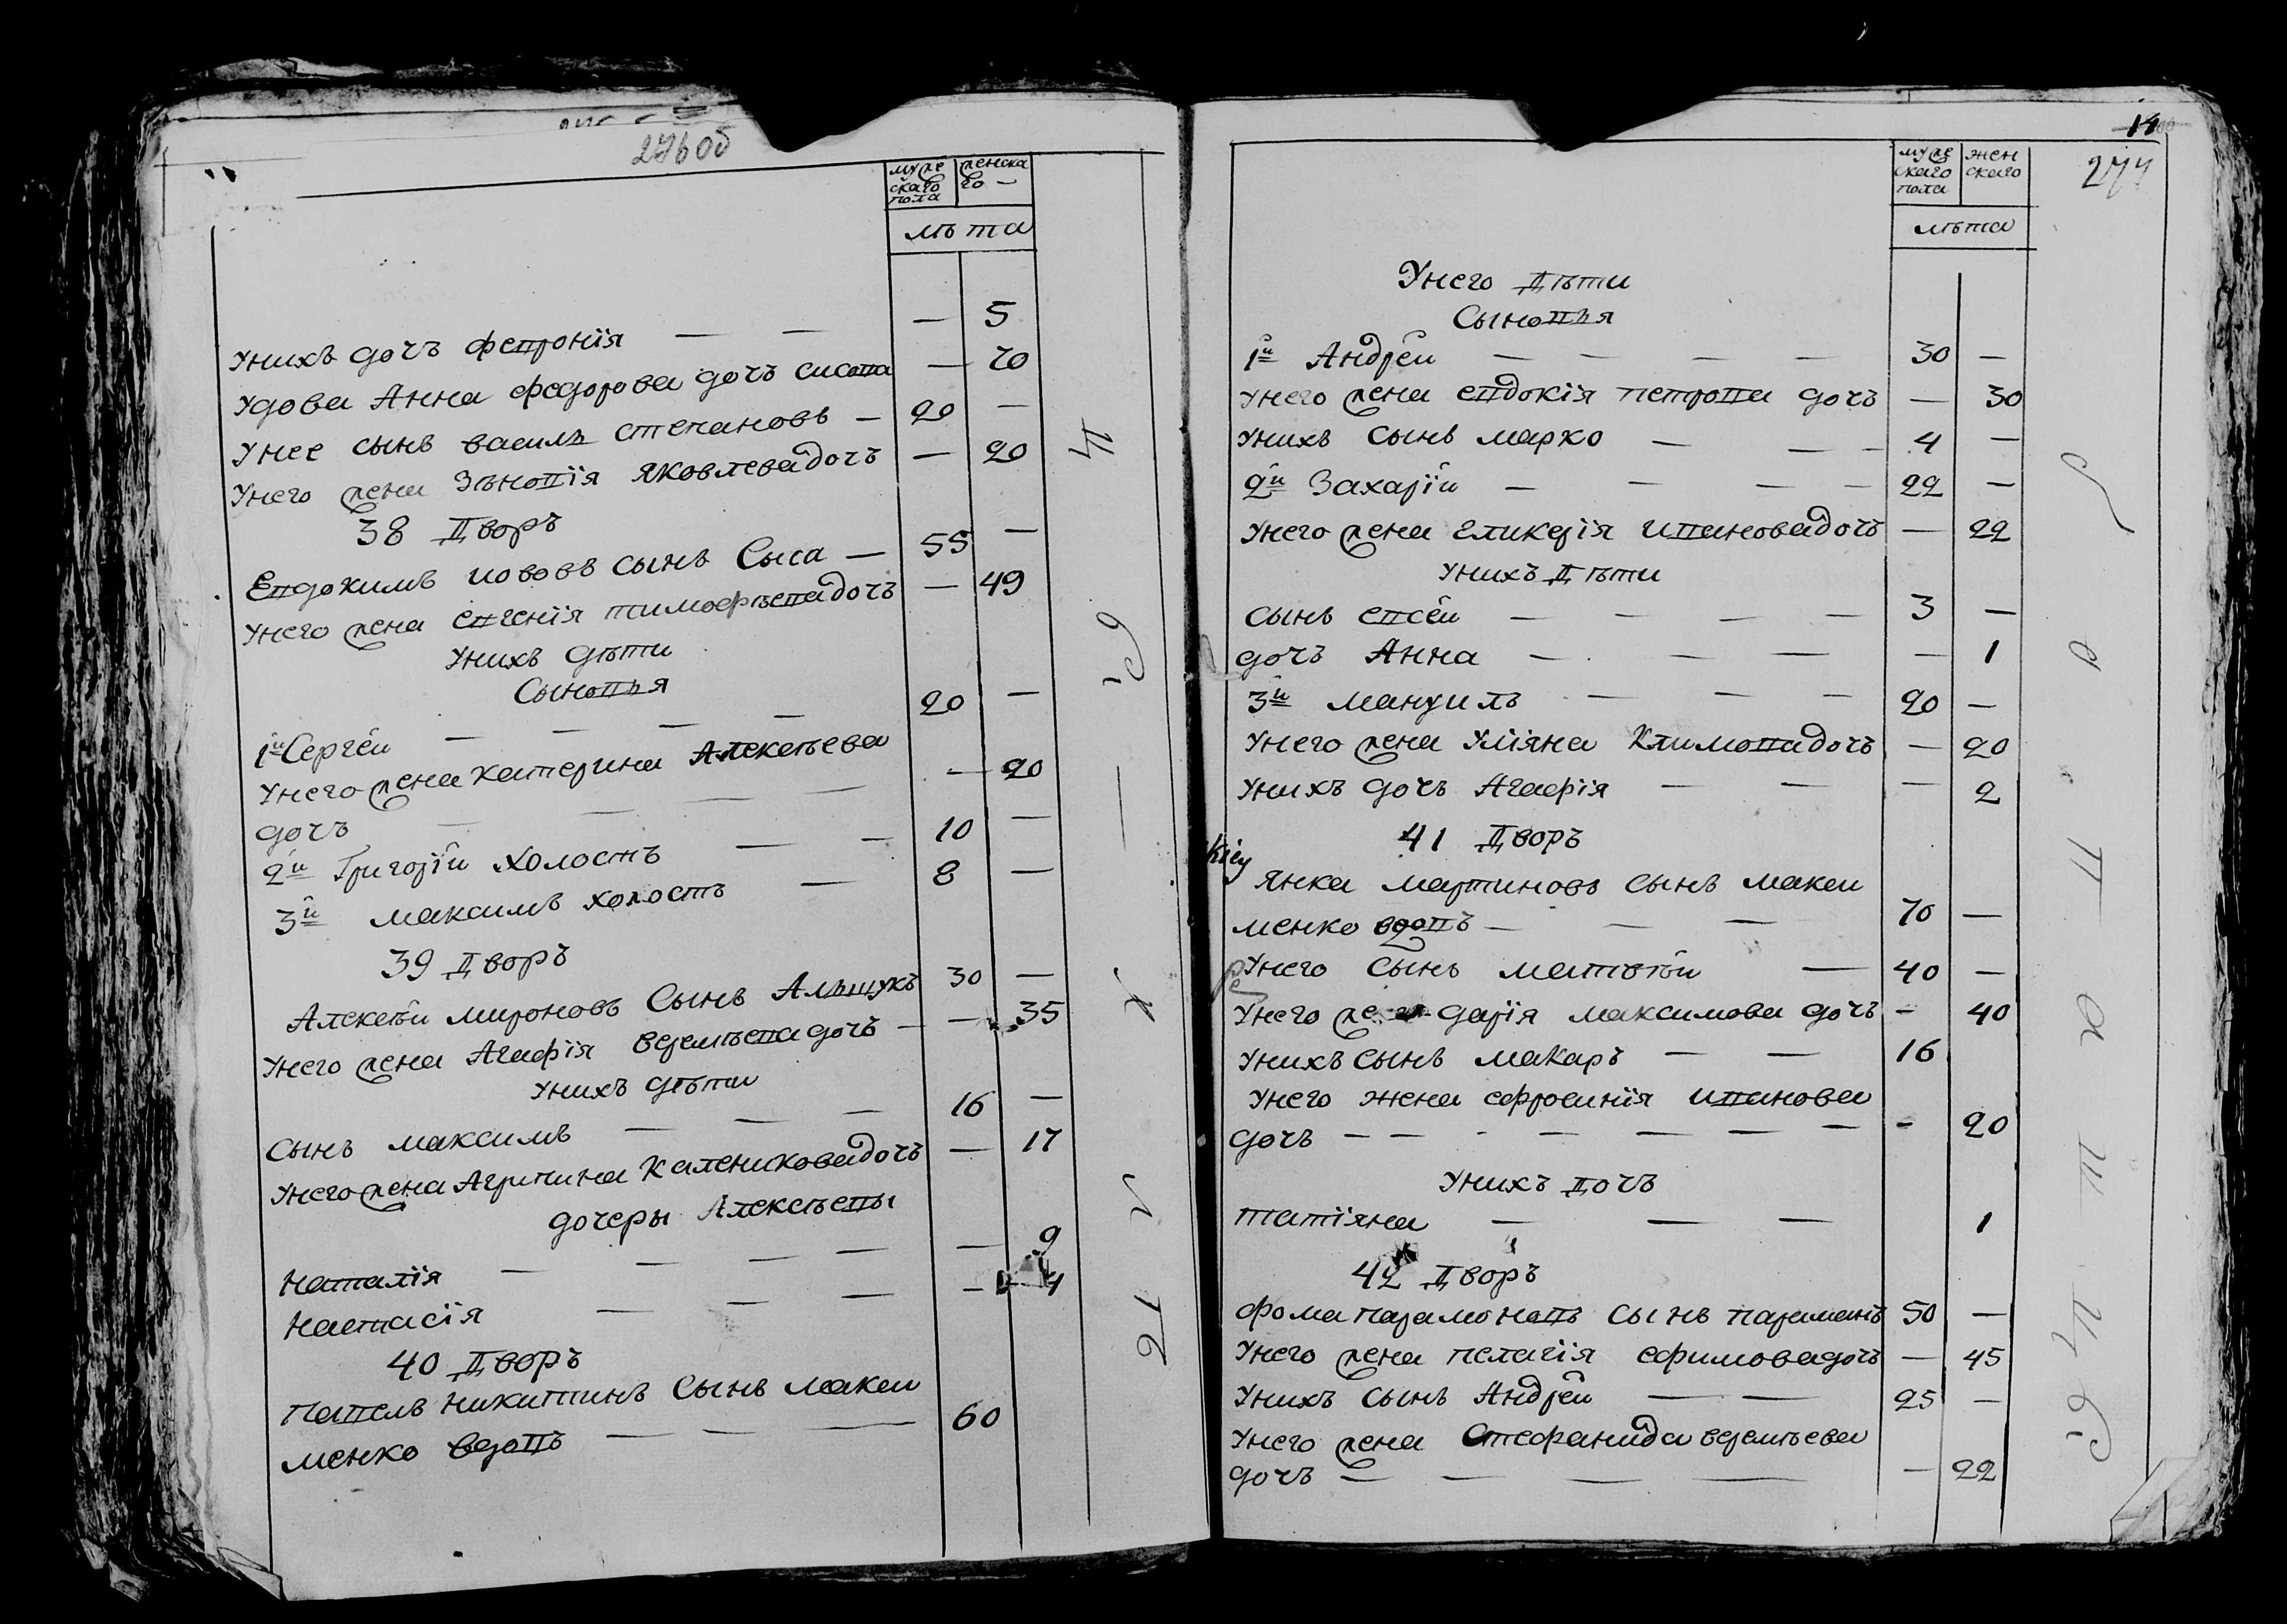 276об
муже
скаго
пола
женска
го —
лѣта
Унихъ дочъ февронія — — — 5
Удова Анна федорова дочъ сисова — 70
Унее сынъ василь степановъ — 20 —
Унего жена Зѣновія яковлева дочъ — 20
38 Дворъ
Евдокимъ иововъ сынъ Сыса — 55 —
Унего жена евгенія тимофѣева дочъ — 49
Унихъ дѣти
Сыновья
1й Сергей — — — 20 —
Унего жена катерина Алексѣева
дочъ — — — — — 20
2й Григорій холостъ — — 10 —
3й максимъ холостъ — 8 —
39 Дворъ
Алексѣй мироновъ сынъ Альшукъ 30 —
Унего жена Агафія веремѣева дочъ — — 35
Унихъ дѣти
сынъ максимъ — — — 16 —
Унего жена Агрипина Калениковадочъ — 17
дочеры Алексѣевы
наталія — — — — — 9
настасія — — — — 4
40 Дворъ
павелъ никитинъ сынъ макси
менко вдовъ — — — — 60
14
277
муже
скаго
пола
жен
скаго
лѣта
Унего Дѣти
Сыновья
1й Андрей — — — — 30 —
Унего жена евдокія петрова дочъ — 30
Унихъ сынъ марко — — - 4 —
2й Захарій — — — — 22 —
Унего жена гликерія ивановадочъ — 22
Унихъ Дѣти
сынъ евсей — — — — 3 —
дочъ Анна — — — — 1
3й мануилъ — — — 20 —
Унего жена Уліяна Климовадочъ — 20
Унихъ дочъ Агафія — — — 2
41 Дворъ
янка мартиновъ сынъ макси
менко вдовъ — — — 70 —
Унего сынъ матвѣй — 40 —
Унего жена дарія максимова дочъ - 40
Унихъ сынъ макаръ — — 16
Унего жена ефросинія иванова
дочъ — — - — — — — - 20
Унихъ дочъ
татіяна — — — 1
42 Дворъ
фома парамоновъ сынъ параманъ 50 —
Унего жена пелагія ефимовадочъ — 45
Унихъ сынъ Андрей — — 25 —
Унего жена Стефанида веремѣева
дочъ — — — — — 22